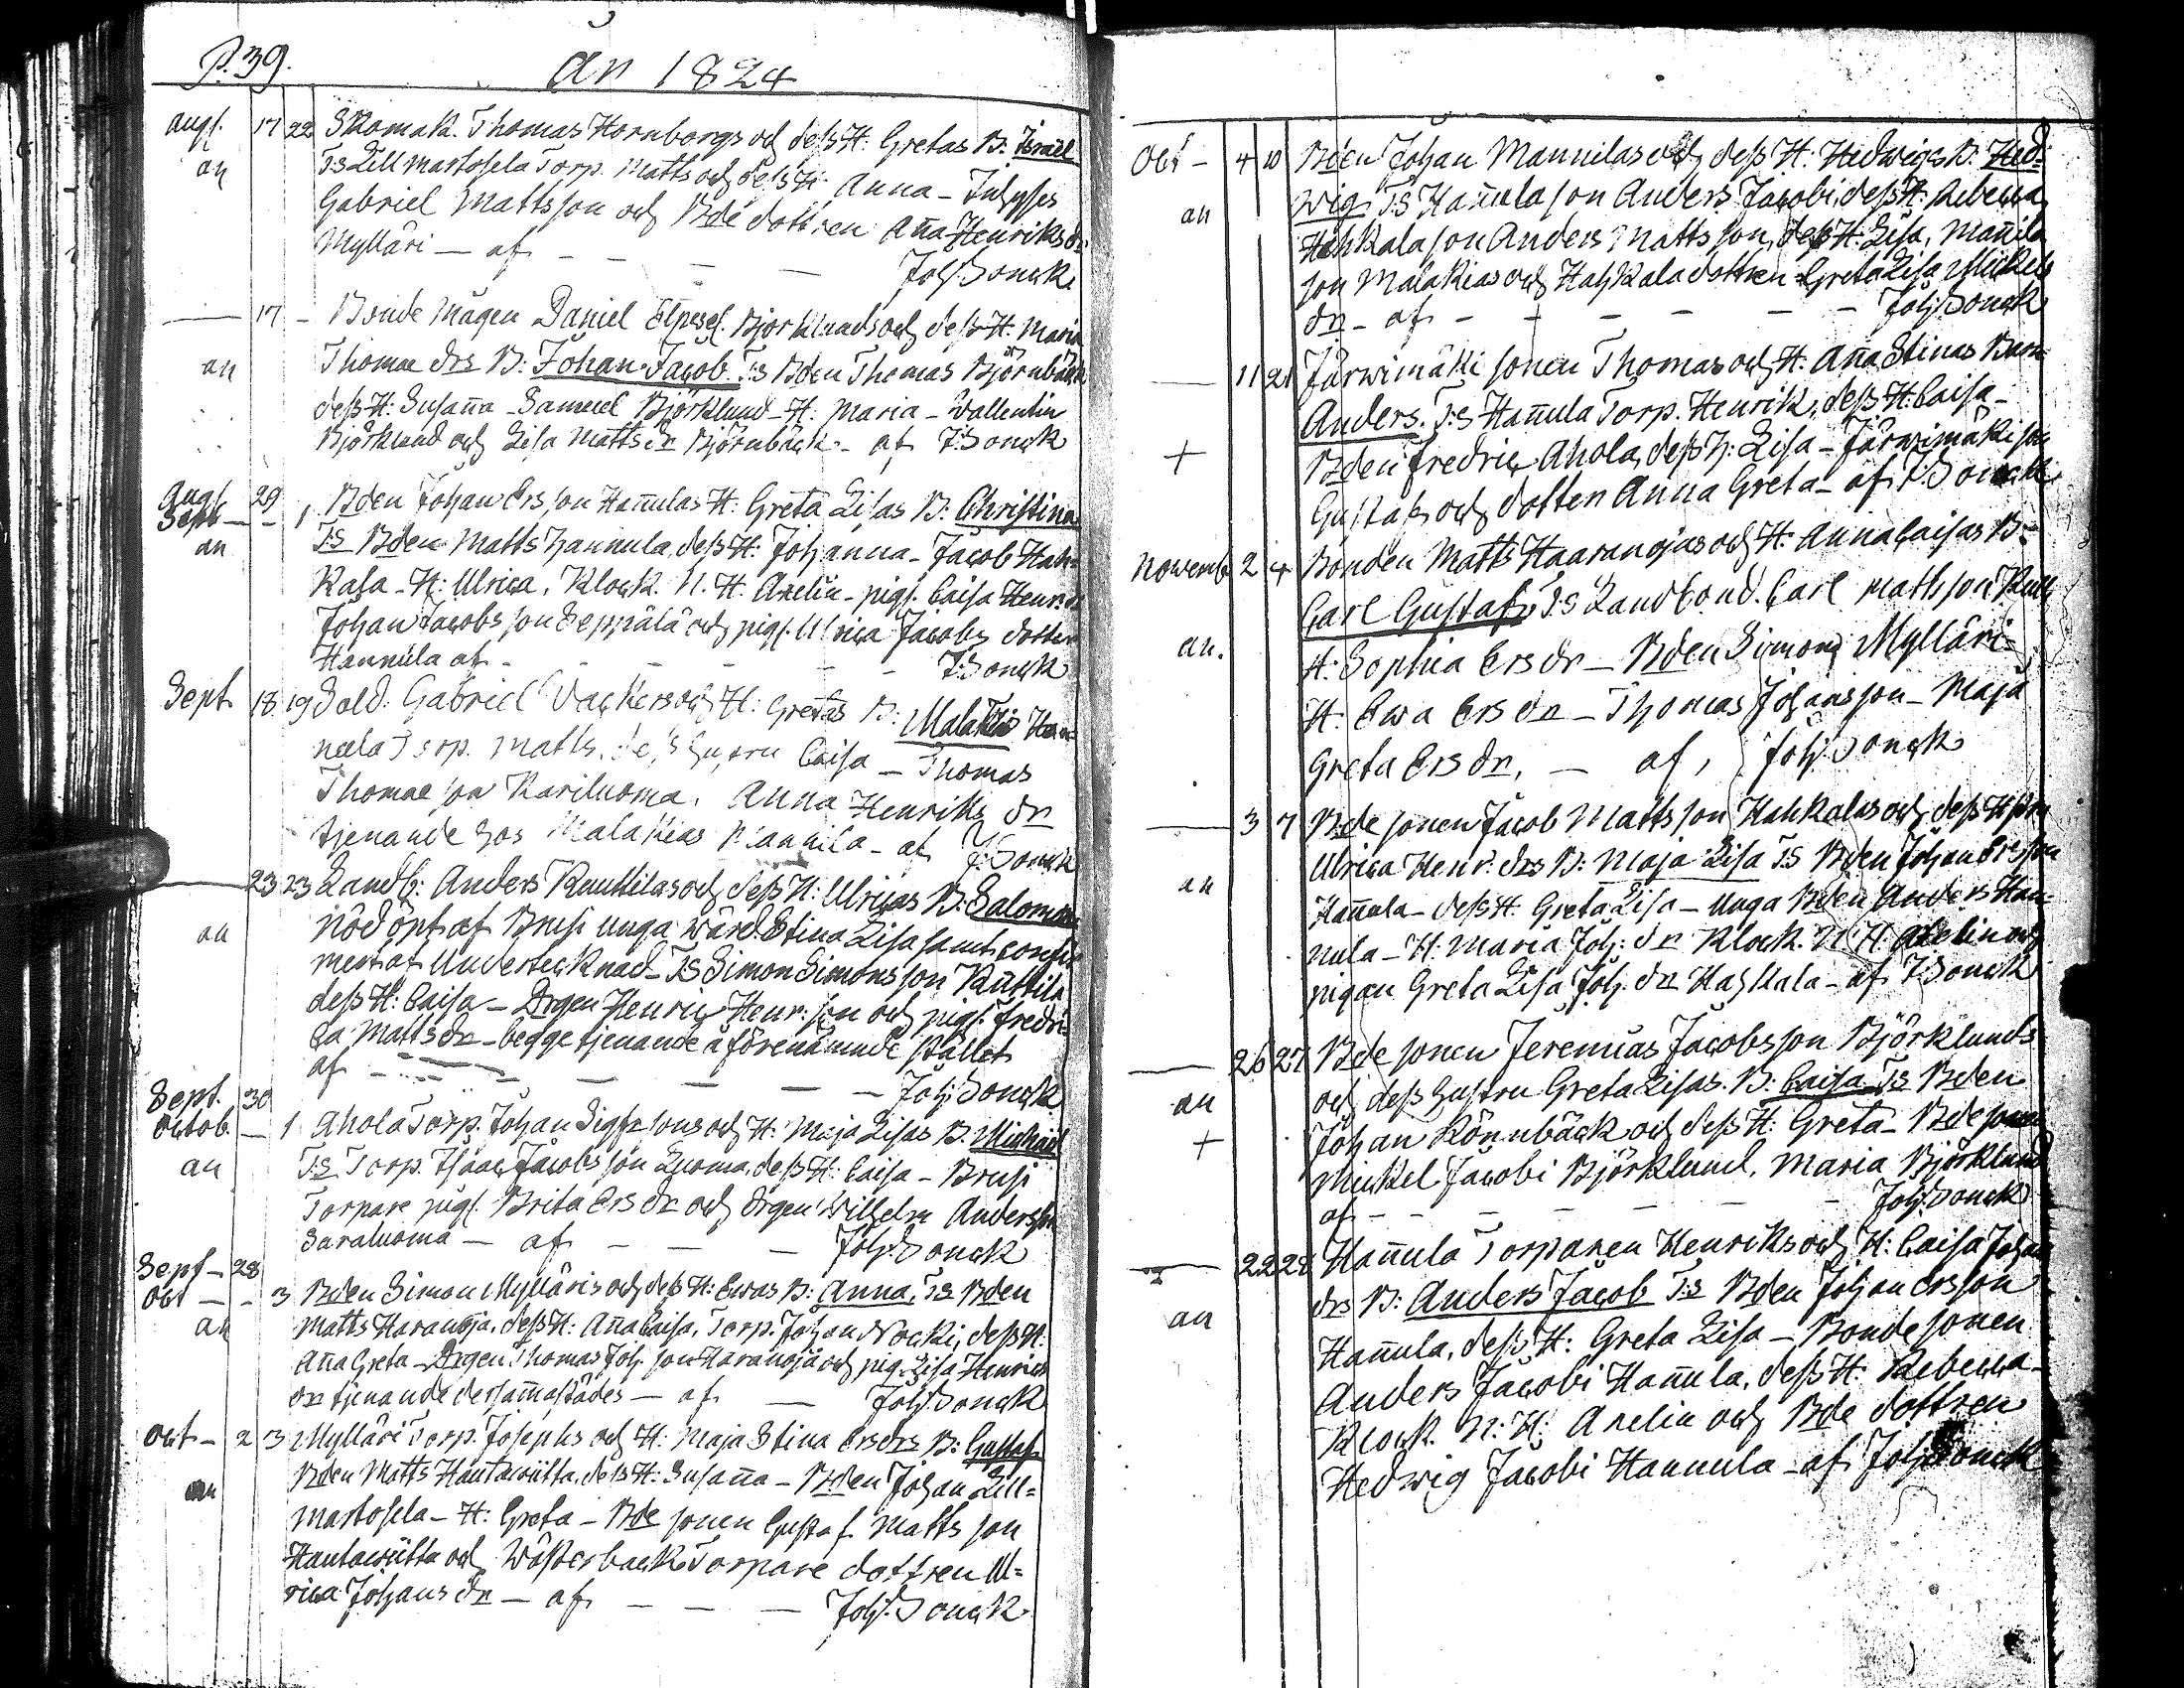 P. 39.
År 1824
Aug. 17 22 Skomak. Thomas Hornborgs och dess H: Gretas B: Israel
an T:s Lillmartosela Torp. Matts och dess H: Anna -
Gabriel Mattsson och Bde dottren Aña Henriks dr
Mylläri - af - - - Joh: Sonck
17 - Bonde Mågen Daniel Björklunds och dess H: Maria
an Thomæ drs B: Johan Jacob. T:s Bden Thomas Björnbäck
dess H: Susaña - Samuel Björklund - H: Maria - Wallentin
Björklund och Lisa Matts dr Björnbäck - af J: Sonck
Aug. 29
Sept - - 1 Bden Johan Ersson Hañulas H: Greta Lisas B: Christina
an T:s Bden Matts Hannula, dess H: Johanna - Jacob Hah-
kala - H: Ulrica, Klock. N. H. Arelin - pig. Caisa Henr. dr
Johan Jacobsson Seppälä och pig. Ulrica Jacobs dotter
Hannula af - - - - J: Sonck
Sept 18 19 Sold. Gabriel Vackers och H: Gretas B: Malakias Han-
nula Torp. Matts, dess hustru Caisa - Thomas
Thomæ son Kariluoma, Anna Henriks dr
tjenande hos Malakias Mannila - af J: Sonck
23 23 Landb: Anders Knuttilas och dess H: Ulricas B: Salomon
an Nöd öpt af Brusi unga wärd. Stina Lisa samt confir-
merat af Undertecknad - T:s Simon Simonsson Kuttila
dess H: Caisa - Drgen Henric Henr: son och pig. Fredri-
ca Matts dr - begge tjenande å förenämnde stället
af - - - - Joh: Sonck
Sept. 30
Octob. - 1 Ahola Torp. Johan Sigfr. sons och H: Maja Lisas B: Michael
an T:s Torp. Isaac Jacobsson Luoma, dess H: Caisa - Brusi
Torpare pig. Brita Ers dr och drgen Wilhelm Andersson
Saraluoma - af - - - Joh: Sonck
Sept - 28
Oct - - 3 Bden Simon Mylläris och dess H: Ewas B: Anna. T:s Bden
an Matts Haranoja, dess H: Aña Caisa, Torp. Johan Nocki, dess H:
Aña Greta - Drgen Thomas Joh: son Haranoja och pig. Lisa Henrics
dr tjenande dersam̃astädes - af - Joh: Sonck
Oct - 2 3 Mylläri Torp. Josephs och H: Maja Stina Ers drs B: Gustaf
an Bden Matts Hautawiitta, dess H: Susaña - Bden Johan Lill-
martosela - H: Greta - Bde sonen Gustaf Mattsson
Hautawiitta och Wästerback Torpare dottren Ul-
rica Johans dr - af - - - Joh: Sonck
Oct - 4 10 Bden Johan Mannilas och dess H: Hedwigs B: Hed-
an wig. T:s Hañula son Anders Jacobi, dess H: Rebecca,
Hahkala son Anders Mattsson, dess H: Lisa, Mañila
son Malakias och Hahkala dottren Greta Lisa Mickels
dr - af - - - - Joh: Sonck
11 21 Järwimäki sonen Thomas och H: Aña Stinas Barn
Anders. T:s Hañula Torp. Henrik, dess H: Caisa -
+ Bden Fredric Ahola, dess H: Lisa - Järwimäki son
Gustaf och dotter Anna Greta - af J: Sonck
Novemb 2 4 Bonden Matts Haaranojas och H: Anna Caisas B:
Carl Gustaf. T:s Landbond. Carl Mattsson
an. H: Sophia Ers dr - Bden Simon Mylläri -
H: Ewa Ers dr - Thomas Johansson - Maja
Greta Ers dr, - af, Joh: Sonck
3 7 Bde sonen Jacob Mattsson Hahkalas och dess H
Ulrica Henr: drs B: Maja Lisa T:s Bden Johan Ersson
an Hañula - dess H: Greta Lisa - Unga Bden Anders Han-
nula - H: Maria Joh: dr Klock. N: H: Arelin och
pigan Greta Lisa Joh: dr Hahkala - af J: Sonck
26 27 Bde sonen Jeremias Jacobsson Björklunds
an och dess hustru Greta Lisas. B: Caisa. T:s Bden
+ Johan Rönnbäck och dess H: Greta - Bde sonen
Mickel Jacobi Björklund, Maria Björklund
af - - - - - Joh: Sonck
22 28 Hañula Torparen Henriks och H: Caisa Johan
drs B: Anders Jacob T:s Bden Johan Ersson
an Hañula, dess H: Greta Lisa - Bonde sonen
Anders Jacobi Hañula, dess H: Rebecca -
Klock. N: H: Arelin och Bde dottren
Hedwig Jacobi Hannula - af Joh: Sonck